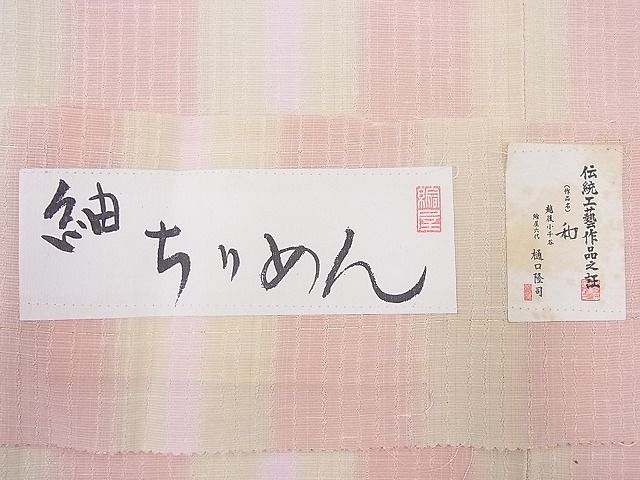 紬ちりめん
伝統工藝作品之証
(作品名)
和
越後小千谷
繪屋六代 樋口隆司